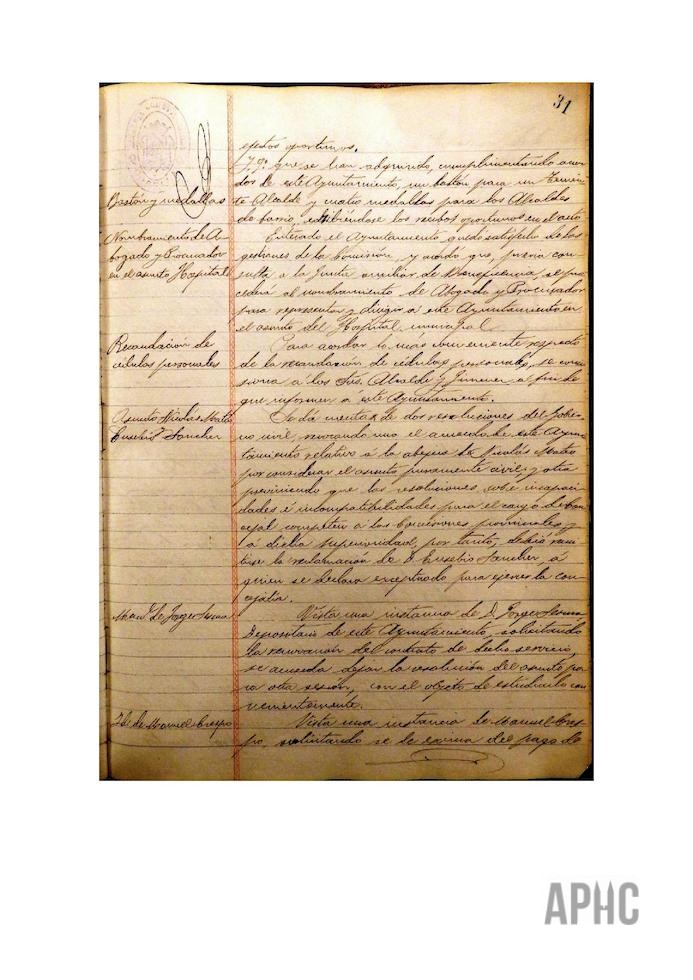 31
efectos oportunos.
Y 9º que se han adquirido, cumplimentando acuer-
dos de este Ayuntamiento, un bastón para un Tenien-
Baston y medallas
te Alcalde y cuatro medallas para los Alcaldes
de barrio, exhibiéndose los recibos oportunos en el acto
Nombramiento de A-
bogado y Procurador
en el asunto Hospital
Enterado el Ayuntamiento quedó satisfecho de las
gestiones de la Comisión, y acordó que, previa con-
sulta a la Junta auxiliar de Beneficencia, se pro-
cederá al nombramiento de Abogado y Procurador
para representar y dirigir a este Ayuntamiento en
el asunto del Hospital municipal.
Recaudación de
cédulas personales
Para acordar lo mas conveniente respecto
de la recaudación de cédulas personales, se comi-
siona á los Sres. Alcalde y Jimenez a fin de
que informen a este Ayuntamiento.
Asunto Nicolás Mateo
Eusebio Sanchez
Se dá cuenta de dos resoluciones del Gobier-
no civil, revocando uno el acuerdo de este Ayun-
tamiento relativo á la abejera de Nicolás Mateo
por considerar el asunto puramente civil, y otra
previniendo que las resoluciones sobre incapaci-
dades é incompatibilidades para el cargo de Con-
cejal competen á las Comisiones provinciales y
á dicha superioridad, por tanto, debía remi-
tirse la reclamación de D. Eusebio Sanchez, á
quien se declara exceptuado para ejercer la con-
cejalía.
de Jorge Serna
Vista una instancia de D. Jorge Serna
Depositario de este Ayuntamiento, solicitando
la renovación del contrato de dicho servicio,
se acuerda dejar la resolución del asunto pa-
ra otra sesión, con el objeto de estudiarlo con-
venientemente.
Id. de Manuel Crespo
Vista una instancia de Manuel Cres-
po, solicitando se le exima del pago de
APHC